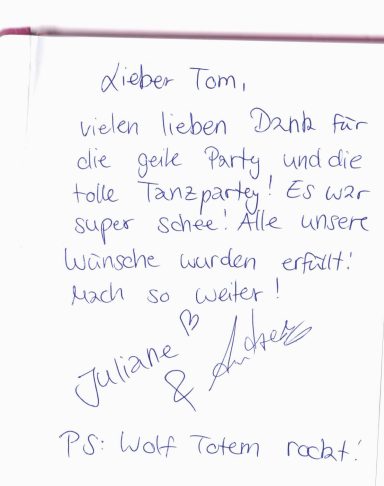 Lieber Tom,
vielen lieben Dank für
die geile Party und die
tolle Tanzpartey! Es war
super schee! Alle unsere
Wünsche wurden erfüllt!
Mach so weiter!
Juliane ♡
& Andreas
PS: Wolf Totem rockt!